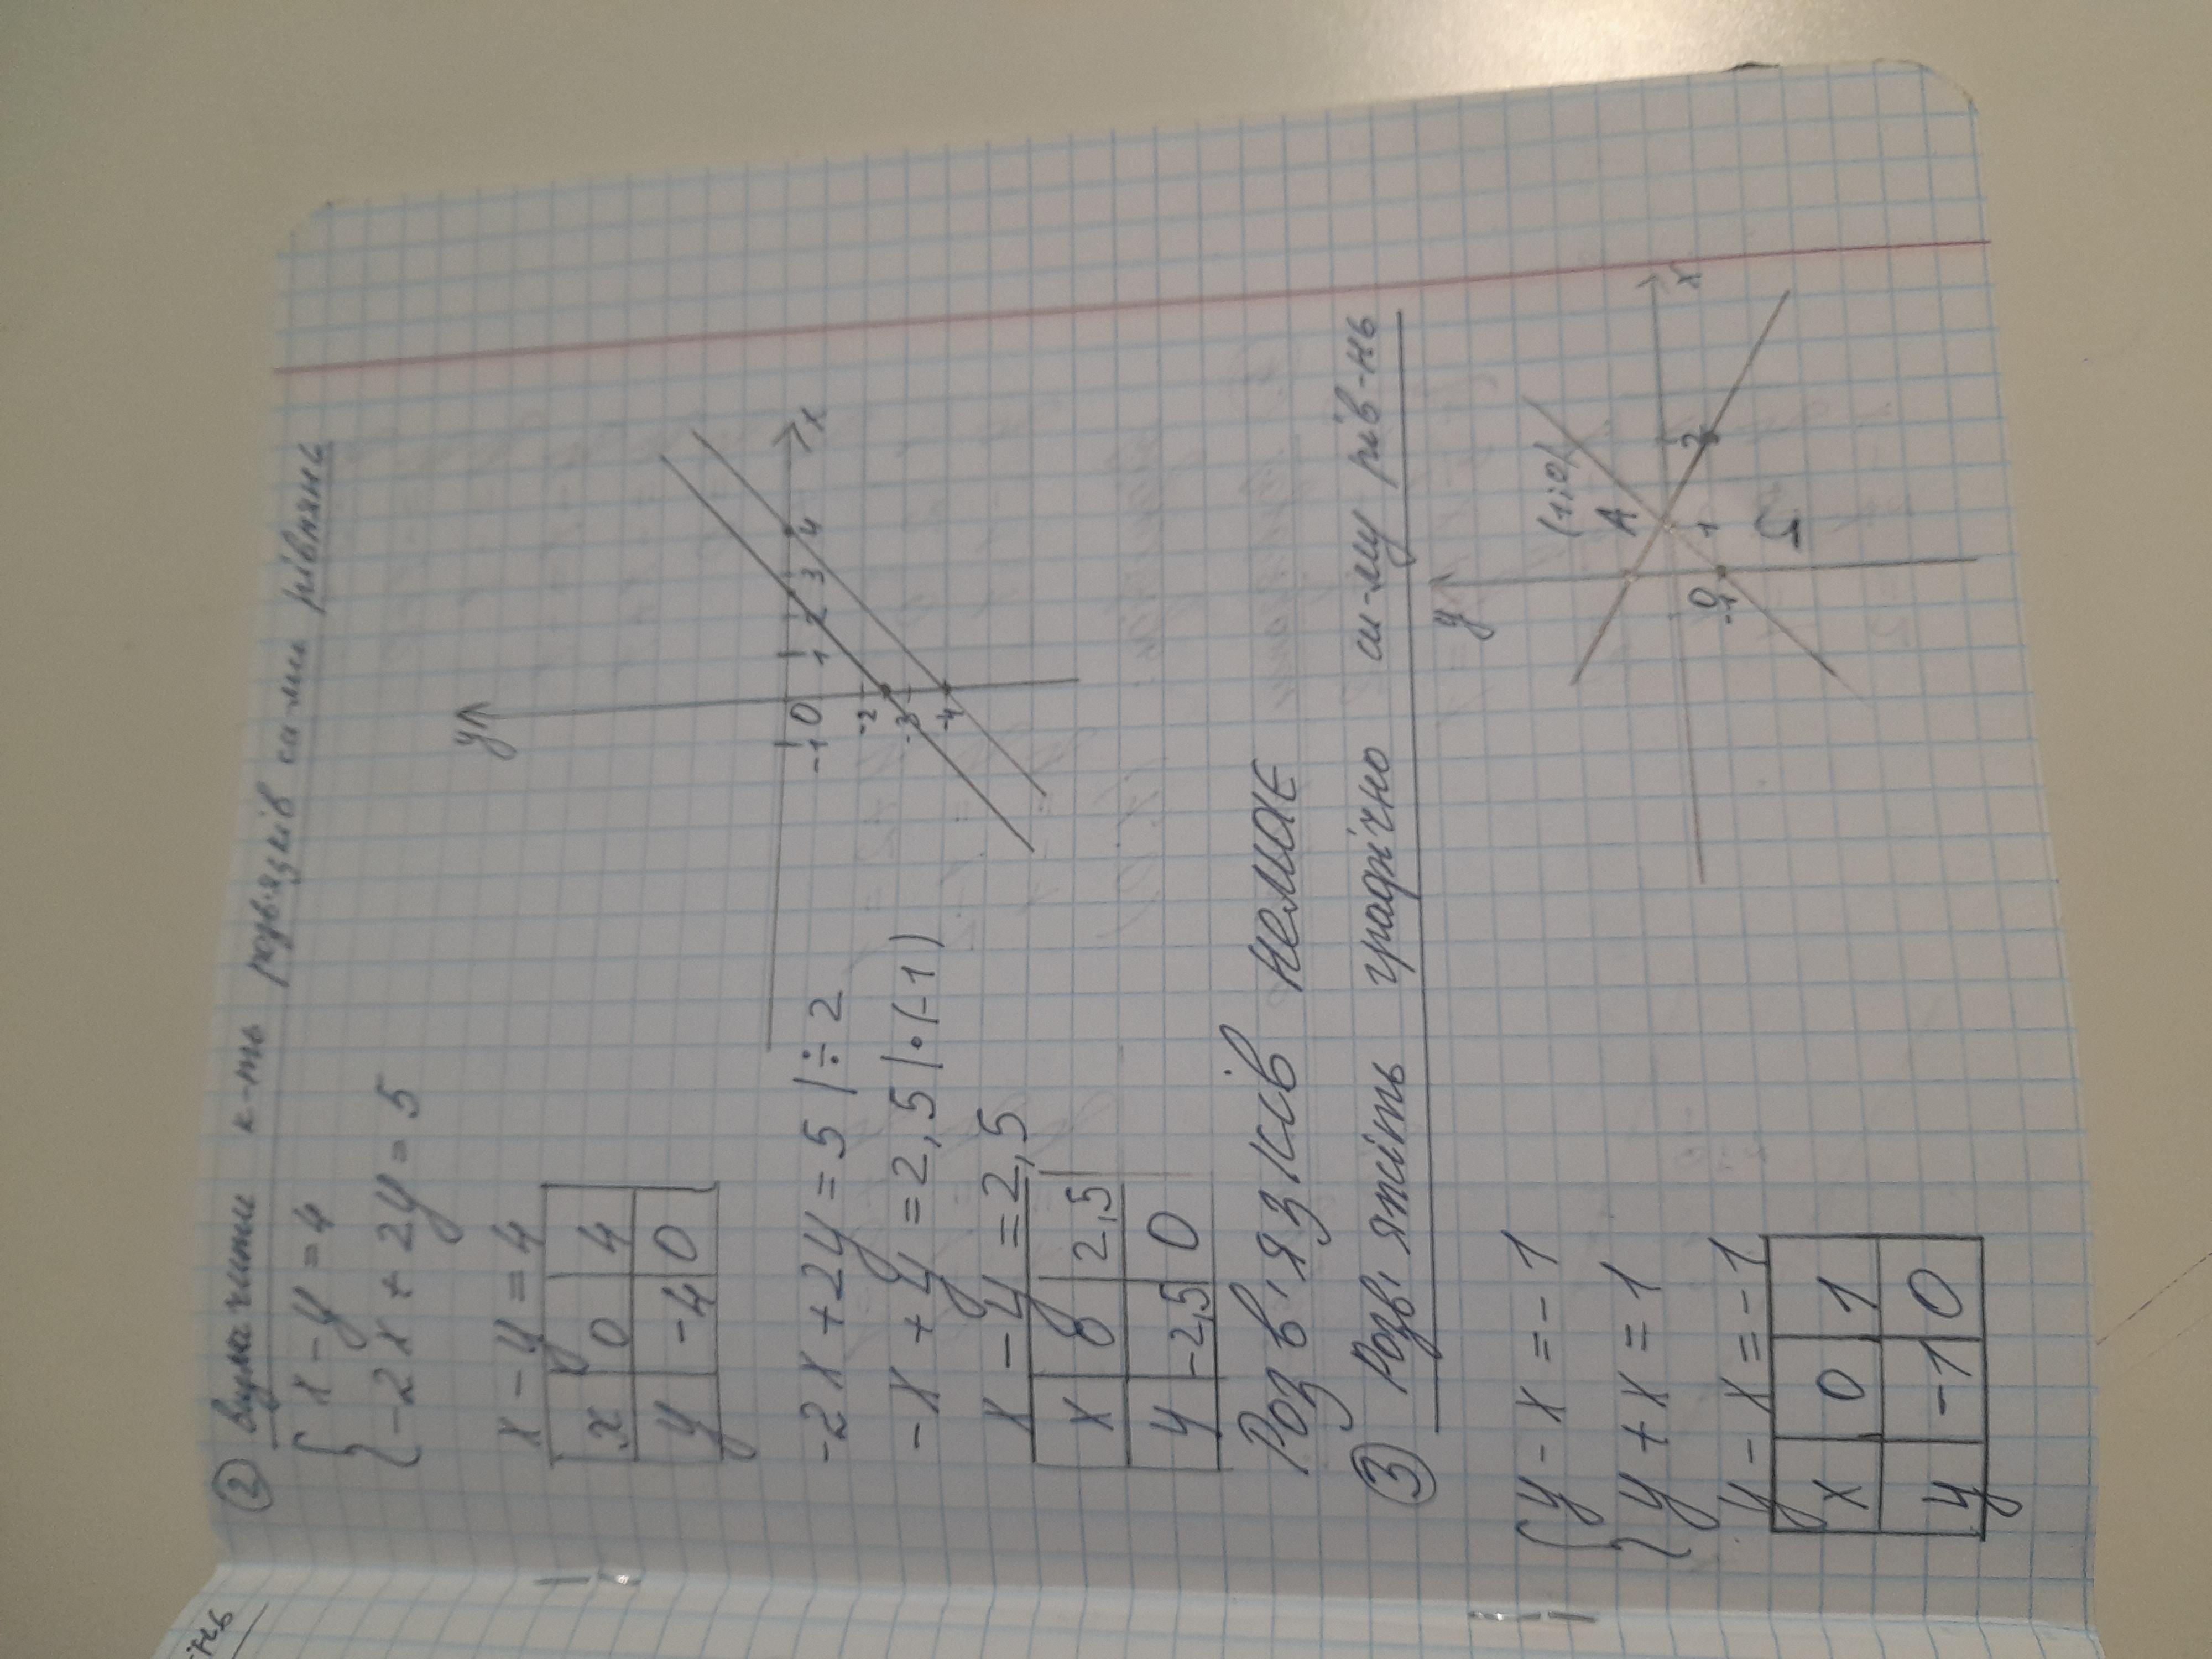 -нь
② Визначити к-ть розв'язків си-ми рівнянь
{ x - y = 4
-2x + 2y = 5
x - y = 4
x 0 4
y -4 0
y
x
-1 0 1 2 3 4
-2
-3
-4
-2x + 2y = 5 | ÷ 2
-x + y = 2,5 | • (-1)
x - y = 2,5
x 0 2,5
y -2,5 0
Розв'язків немає
③ Розв'яжіть графічно си-му рів-нь
{ y - x = -1
y + x = 1
y - x = -1
x 0 1
y -1 0
y
x
A
(1;0)
0 1 2
-1